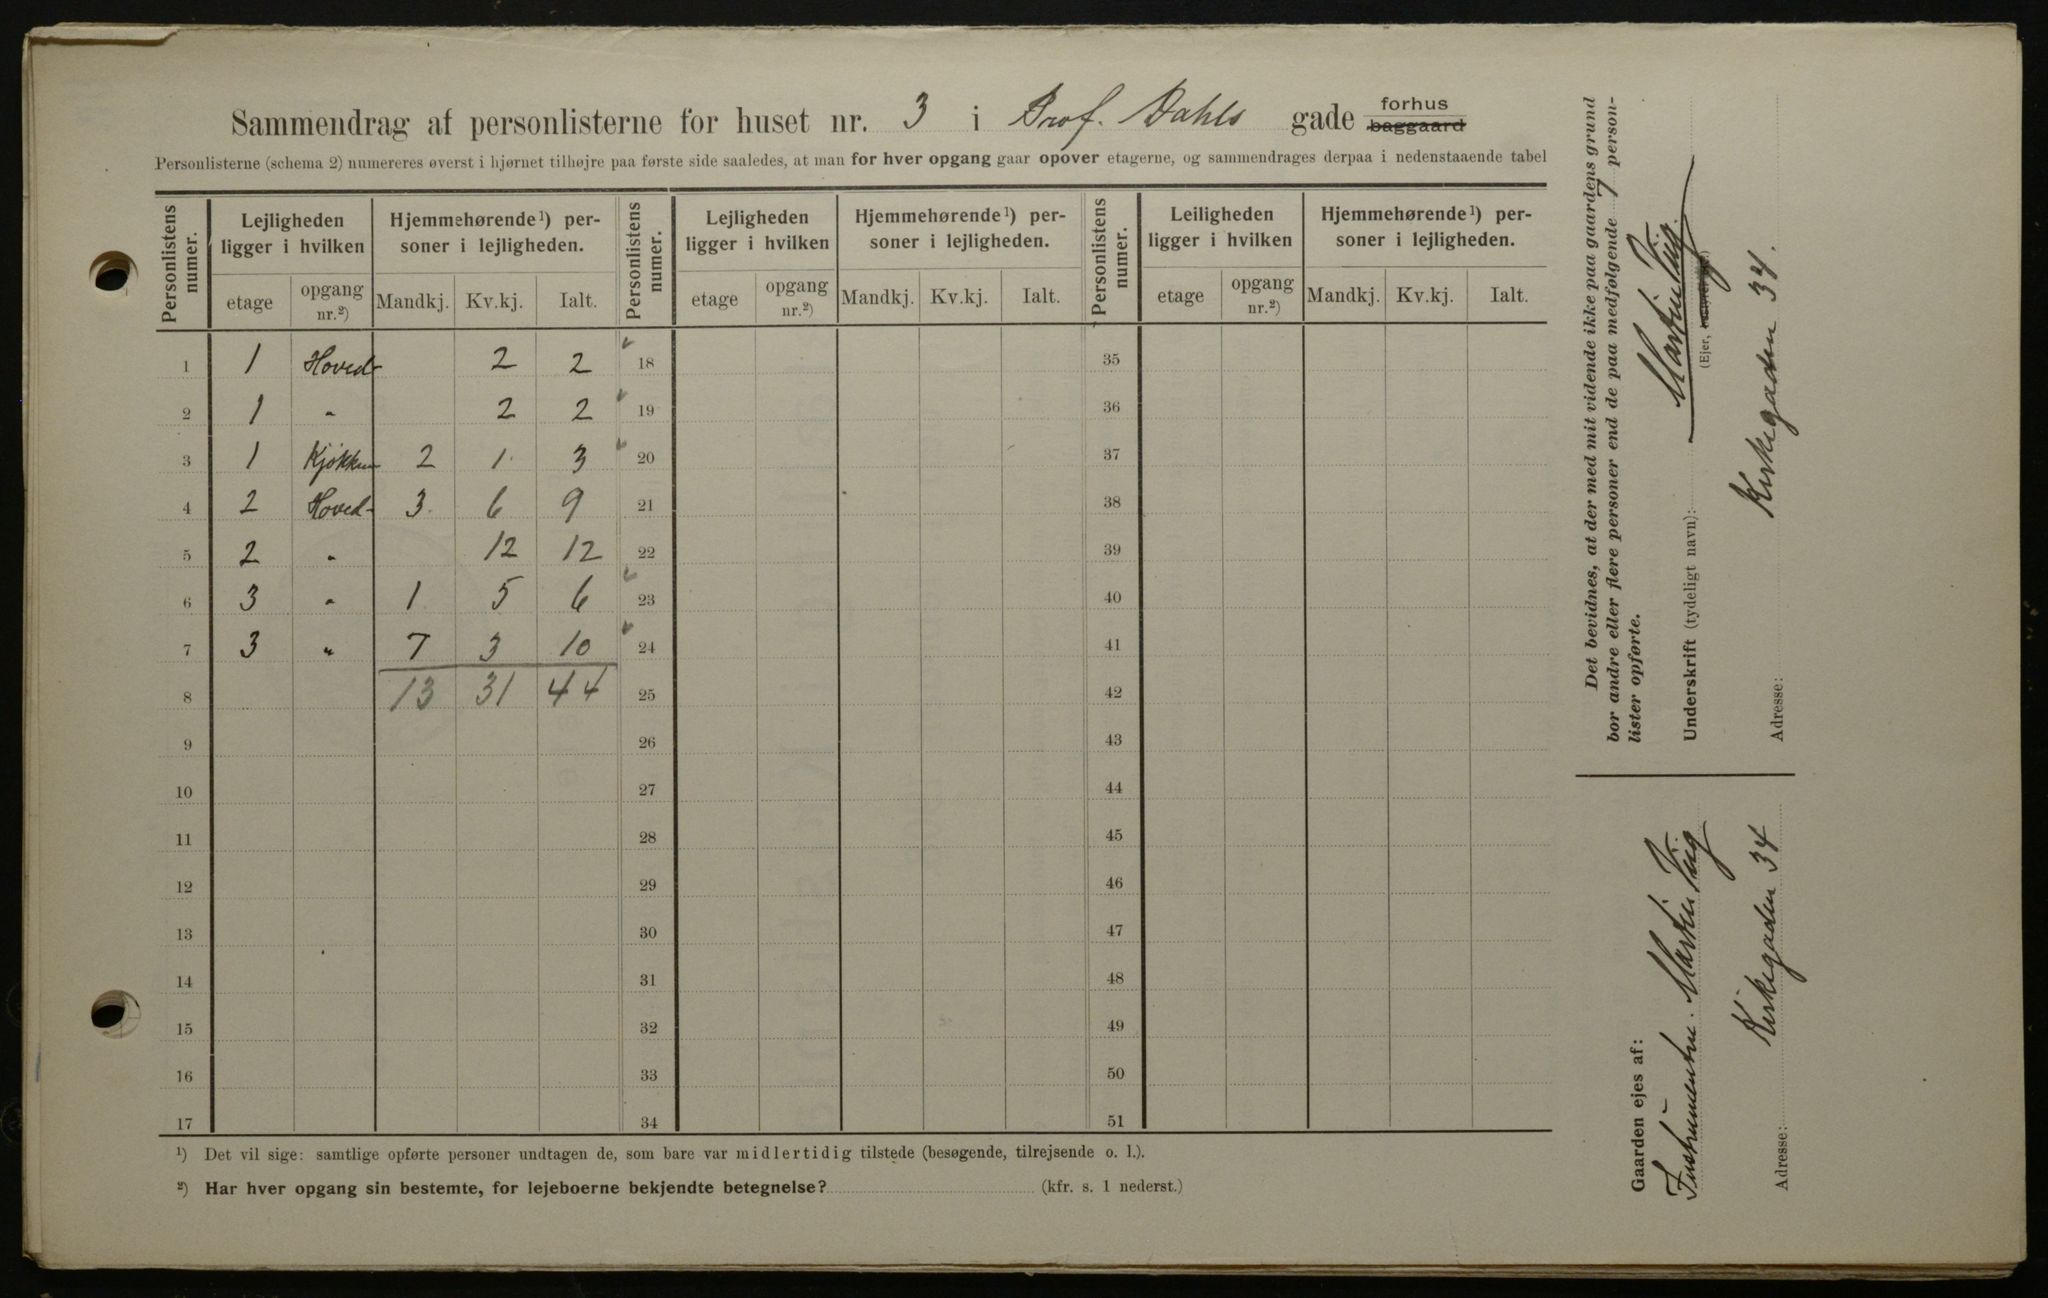 Sammendrag af personlisterne for huset nr. 3 i Prof. Dahls gade forhus baggaard
Personlisterne (schema 2) numereres øverst i hjørnet tilhøjre paa første side saaledes, at man for hver opgang gaar opover etagerne, og sammendrages derpaa i nedenstaaende tabel
Personlistens numer. Lejligheden ligger i hvilken Hjemmehørende¹) personer i lejligheden. Personlistens numer. Lejligheden ligger i hvilken Hjemmehørende¹) personer i lejligheden. Personlistens numer. Leiligheden ligger i hvilken Hjemmehørende¹) personer i lejligheden.
etage opgang nr.²) Mandkj. Kv.kj. Ialt. etage opgang nr.²) Mandkj. Kv.kj. Ialt. etage opgang nr.²) Mandkj. Kv.kj. Ialt.
1 1 Hoved- 2 2 18 35
2 1 " 2 2 19 36
3 1 Kjøkken 2 1 3 20 37
4 2 Hoved- 3 6 9 21 38
5 2 " 12 12 22 39
6 3 " 1 5 6 23 40
7 3 " 7 3 10 24 41
8 13 31 44 25 42
9 26 43
10 27 44
11 28 45
12 29 46
13 30 47
14 31 48
15 32 49
16 33 50
17 34 51
¹) Det vil sige: samtlige opførte personer undtagen de, som bare var midlertidig tilstede (besøgende, tilrejsende o. l.).
²) Har hver opgang sin bestemte, for lejeboerne bekjendte betegnelse? (kfr. s. 1 nederst.)
Det bevidnes, at der med mit vidende ikke paa gaardens grund
bor andre eller flere personer end de paa medfølgende 7 person-
lister opførte.
Underskrift (tydeligt navn): Martin
(Ejer,
Adresse: Kirkegaden 34.
Gaarden ejes af:
Instrumentm. Martin
Adresse: Kirkegaden 34